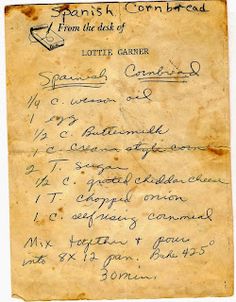 Spanish Cornbread
From the desk of
LOTTIE GARNER
Spainish Cornbread
1/4 C. wesson oil
1 egg
1/2 C. Buttermilk
1 C. Cream style corn
2 T. sugar
1/2 C. grated cheddar cheese
1 T. chopped onion
1 C. selfrising cornmeal
Mix together & pour
into 8X12 pan. Bake 425°
30 min.